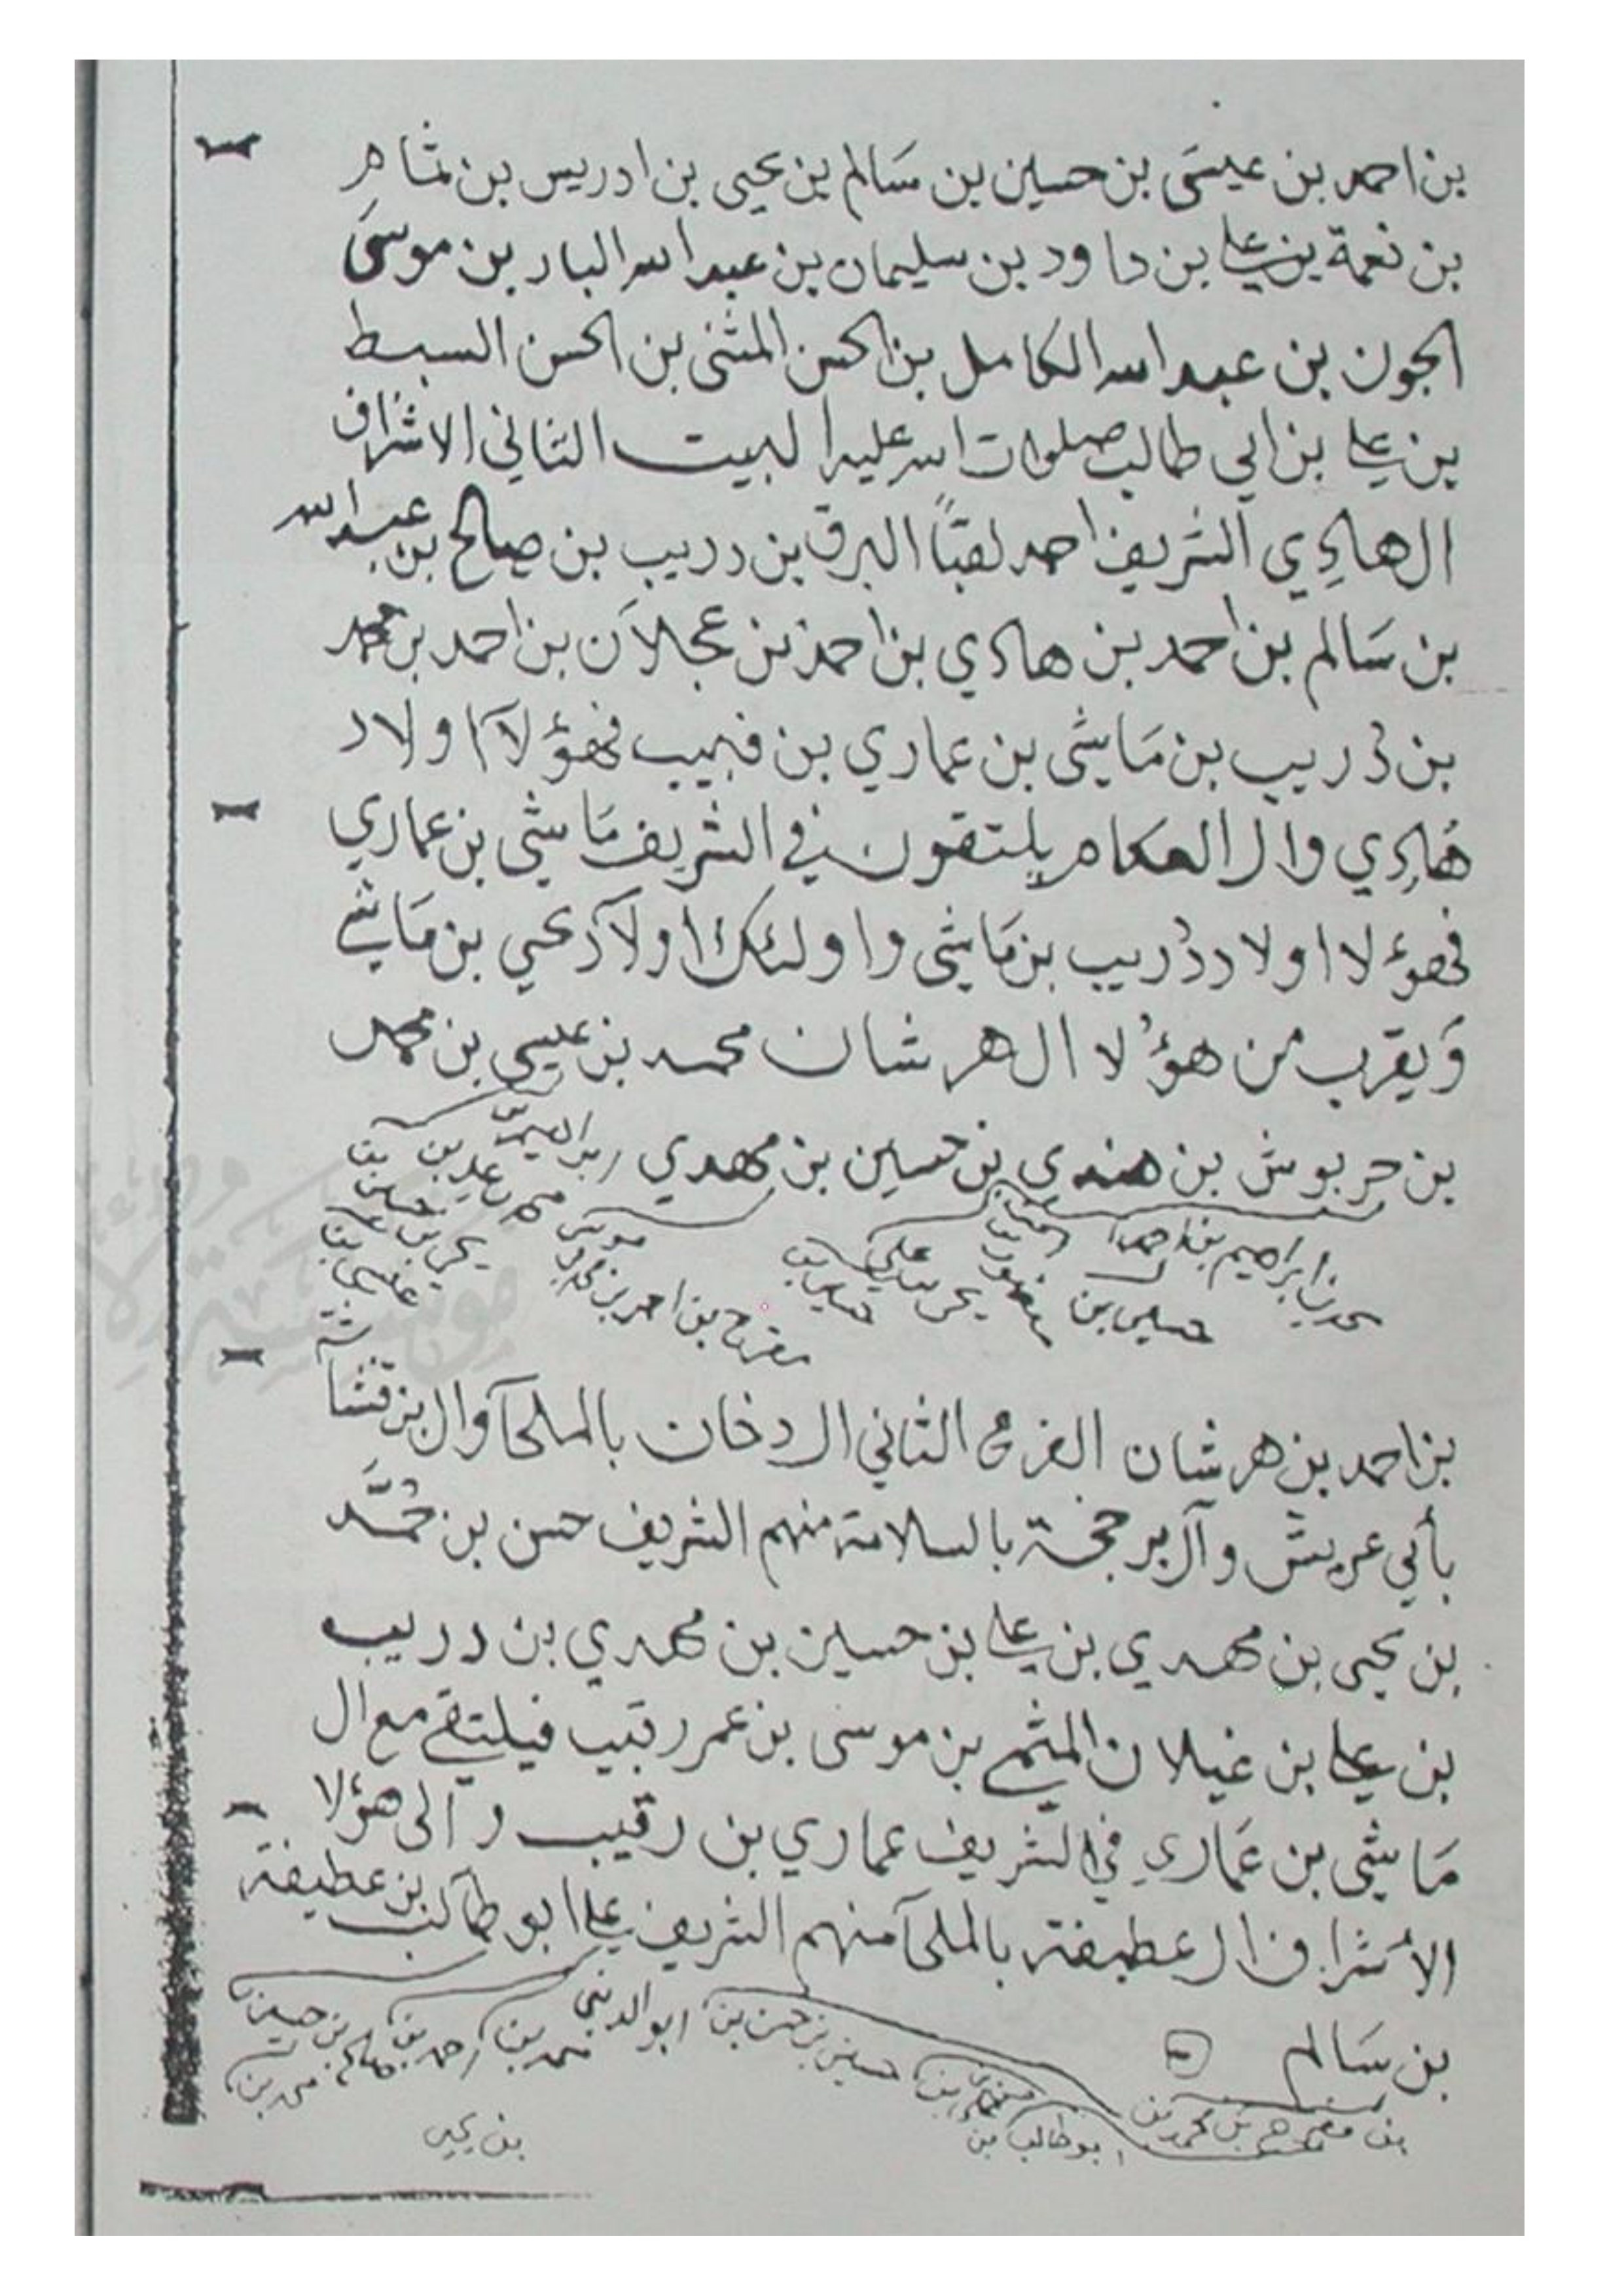 بن احمد بن عيسَى بن حسين بن سَالم بن يحيى بن ادريس بن
بن نعمة بن علي بن داود بن سليمان بن عبد الله البار بن موسىَ
الجون بن عبد الله الكامل بن الحسن المثنى بن الحسن السبط
بن علي بن ابي طالب صلوات الله عليه البيت الثاني الاشراف
ال هادِي الشريف احمد لقباً البرق بن دريب بن صالح بن عبد الله
بن سَالم بن احمد بن هادي بن احمد بن عجلاَن بن احمد بن محمد
بن دُريب بن مَايشى بن عماري بن فهيب فهؤلآ اولاد
هَادِي وال العكام يلتقون في الشريف مَايشي بن عماري
فهوء لا اولاد دُريب بن مَايشى واولئك اولآد يحي بن مَايشي
وَيقرب من هؤُلا ال هرشان محمد بن عيسى بن محمد
بن حربوش بن هندي بن حسين بن مهدي
محمد بن ابراهيم بن احمد
حسين بن
مفرح بن احمد بن
بن احمد بن هرشان الفرع الثاني ال دخان بالملحآ وال بن
بأبي عريش وآل بر بالسلامة منهم الشريف حسن بن حُمَّد
بن يحيى بن مهدي بن علي بن حسين بن مهدي بن دريب
بن علي بن غيلان بن موسى بن عمر رقيب فيلتقي مع ال
مَايشى بن عَماري في الشريف عماري بن رقيب والى هؤلا
الأشراف ال عطيفة بالملحآ منهم الشريف علي ابو طالب بن عطيفة
حسين بن حسن بن ابو
احمد بن صالح بن حسين
محمد بن
بن سَالم
بن مفرح بن محمد بن
ابو طالب بن
بن يحيى